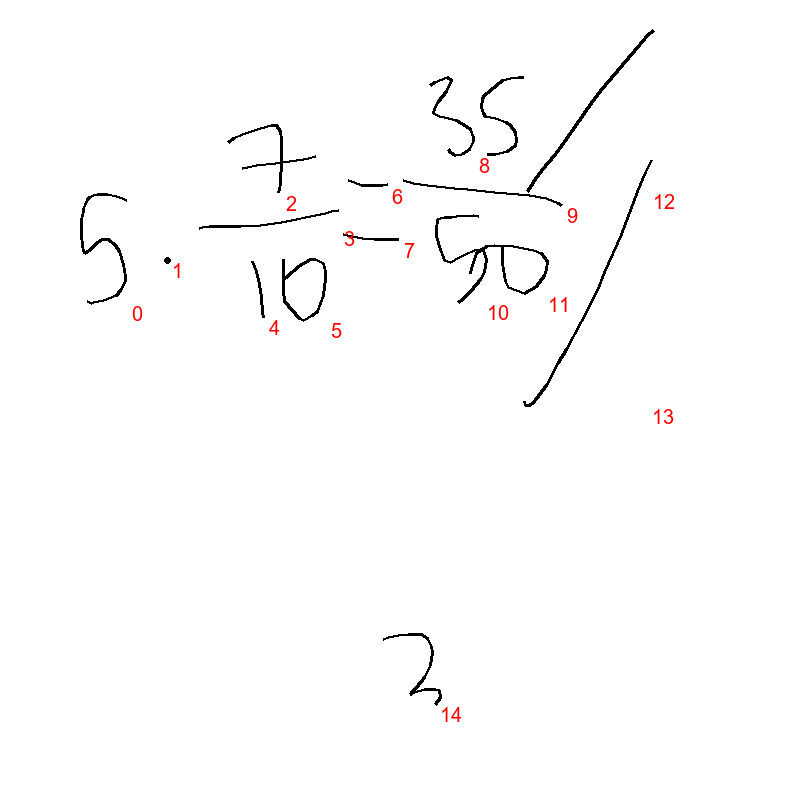 5 · 7/10 = 35/50 //
0 1 2 3 4 5 6 7 8 9 10 11 12 13
2
14